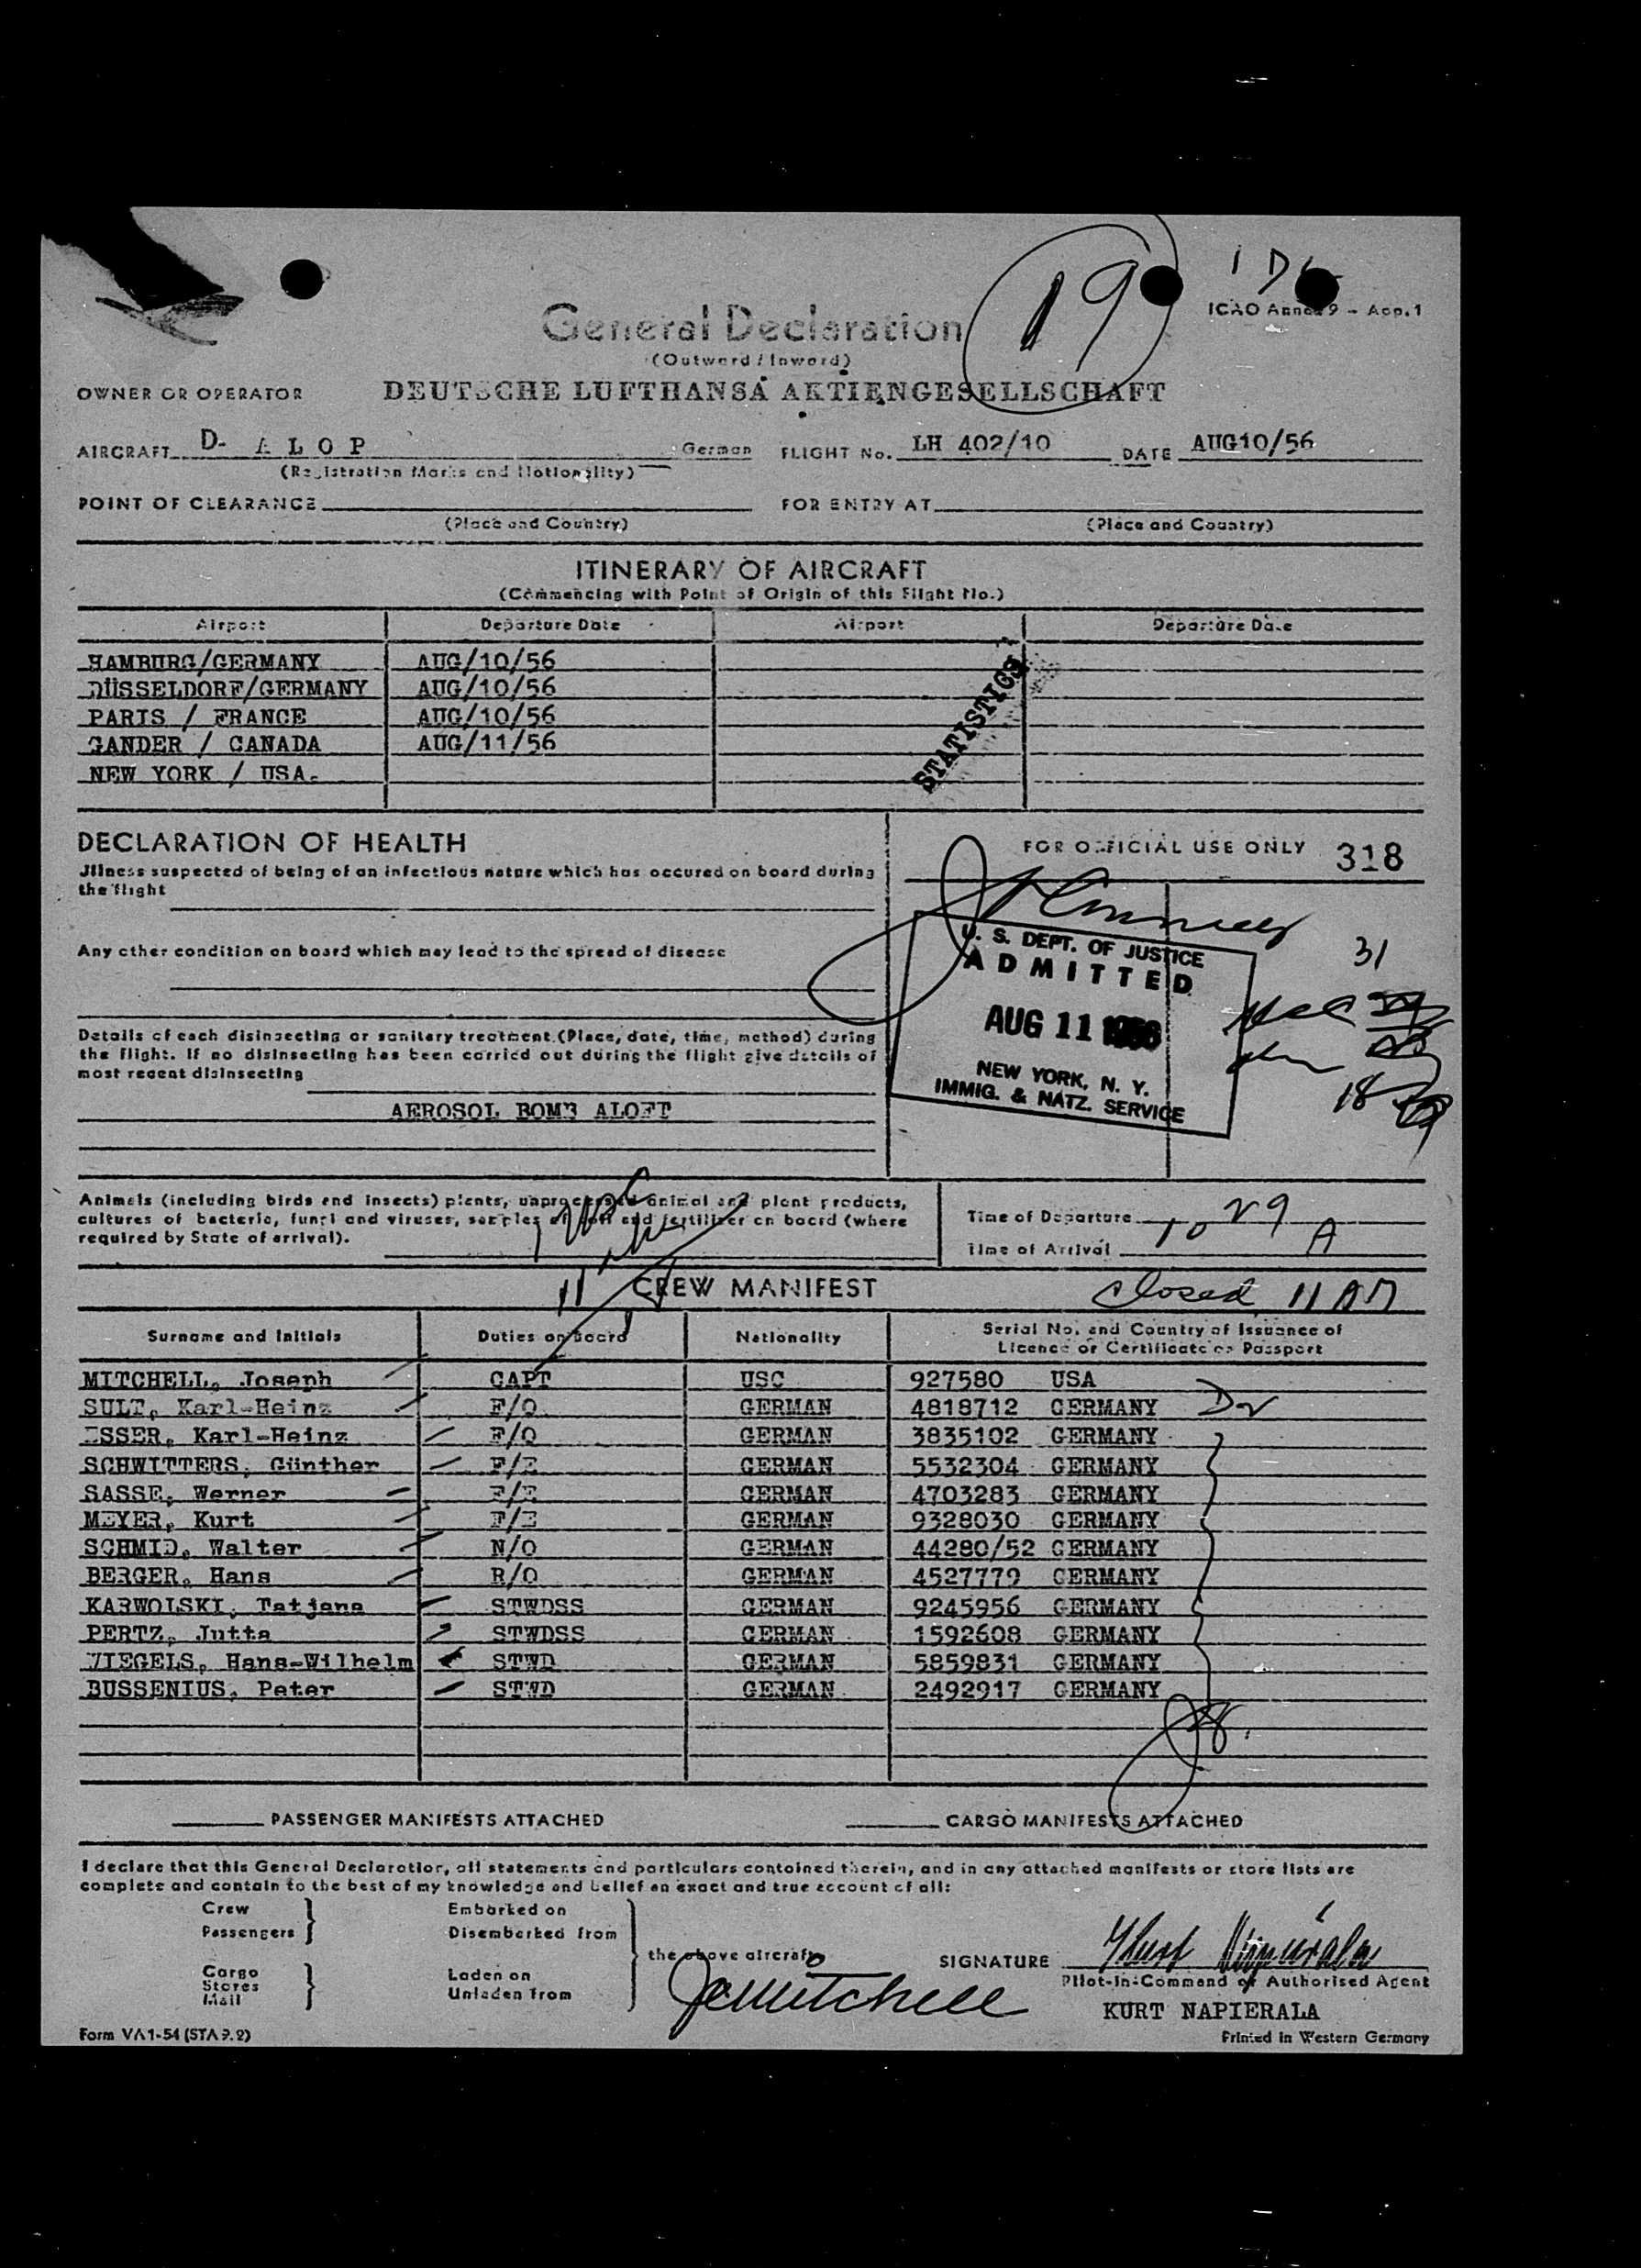 19
ICAO Annex 9 - App. 1
General Declaration
(Outward / Inward)
OWNER OR OPERATOR DEUTSCHE LUFTHANSA AKTIENGESELLSCHAFT
AIRCRAFT D- A L O P German FLIGHT No. LH 402/10 DATE AUG10/56
(Registration Marks and Nationality)
POINT OF CLEARANCE FOR ENTRY AT
(Place and Country) (Place and Country)
ITINERARY OF AIRCRAFT
(Commencing with Point of Origin of this Flight No.)
Airport Departure Date Airport Departure Date
HAMBURG/GERMANY AUG/10/56
DÜSSELDORF/GERMANY AUG/10/56
PARIS / FRANCE AUG/10/56
GANDER / CANADA AUG/11/56
NEW YORK / USA.
STATISTICS
DECLARATION OF HEALTH
Illness suspected of being of an infectious nature which has occured on board during
the flight
Any other condition on board which may lead to the spread of disease
Details of each disinsecting or sanitary treatment (Place, date, time, method) during
the flight. If no disinsecting has been carried out during the flight give details of
most recent disinsecting
AEROSOL BOMB ALOFT
FOR OFFICIAL USE ONLY 318
U. S. DEPT. OF JUSTICE
ADMITTED
AUG 11 1956
NEW YORK, N. Y.
IMMIG. & NATZ. SERVICE
31
18
Animals (including birds and insects) plants, unprocessed animal and plant products,
cultures of bacteria, fungi and viruses, samples of soil and fertilizer on board (where
required by State of arrival).
Time of Departure
Time of Arrival 10 29 A
CREW MANIFEST
closed 11 AM
Surname and Initials Duties on board Nationality Serial No. and Country of Issuance of
Licence or Certificate or Passport
MITCHELL, Joseph CAPT USC 927580 USA
SULT, Karl-Heinz F/O GERMAN 4818712 GERMANY
ESSER, Karl-Heinz F/O GERMAN 3835102 GERMANY
SCHWITTERS, Günther F/E GERMAN 5532304 GERMANY
SASSE, Werner F/E GERMAN 4703283 GERMANY
MEYER, Kurt F/E GERMAN 9328030 GERMANY
SCHMID, Walter N/O GERMAN 44280/52 GERMANY
BERGER, Hans R/O GERMAN 4527779 GERMANY
KARWOLSKI, Tatjana STWDSS GERMAN 9245956 GERMANY
PERTZ, Jutta STWDSS GERMAN 1592608 GERMANY
WIEGELS, Hans-Wilhelm STWD GERMAN 5859831 GERMANY
BUSSENIUS, Peter STWD GERMAN 2492917 GERMANY
PASSENGER MANIFESTS ATTACHED CARGO MANIFESTS ATTACHED
I declare that this General Declaration, all statements and particulars contained therein, and in any attached manifests or store lists are
complete and contain to the best of my knowledge and belief an exact and true account of all:
Crew
Passengers
Embarked on
Disembarked from
Cargo
Stores
Mail
Laden on
Unladen from
the above aircraft
JoMitchell
SIGNATURE Kurt Napierala
Pilot-in-Command or Authorised Agent
KURT NAPIERALA
Form VA 1-54 (STA 9.2) Printed in Western Germany